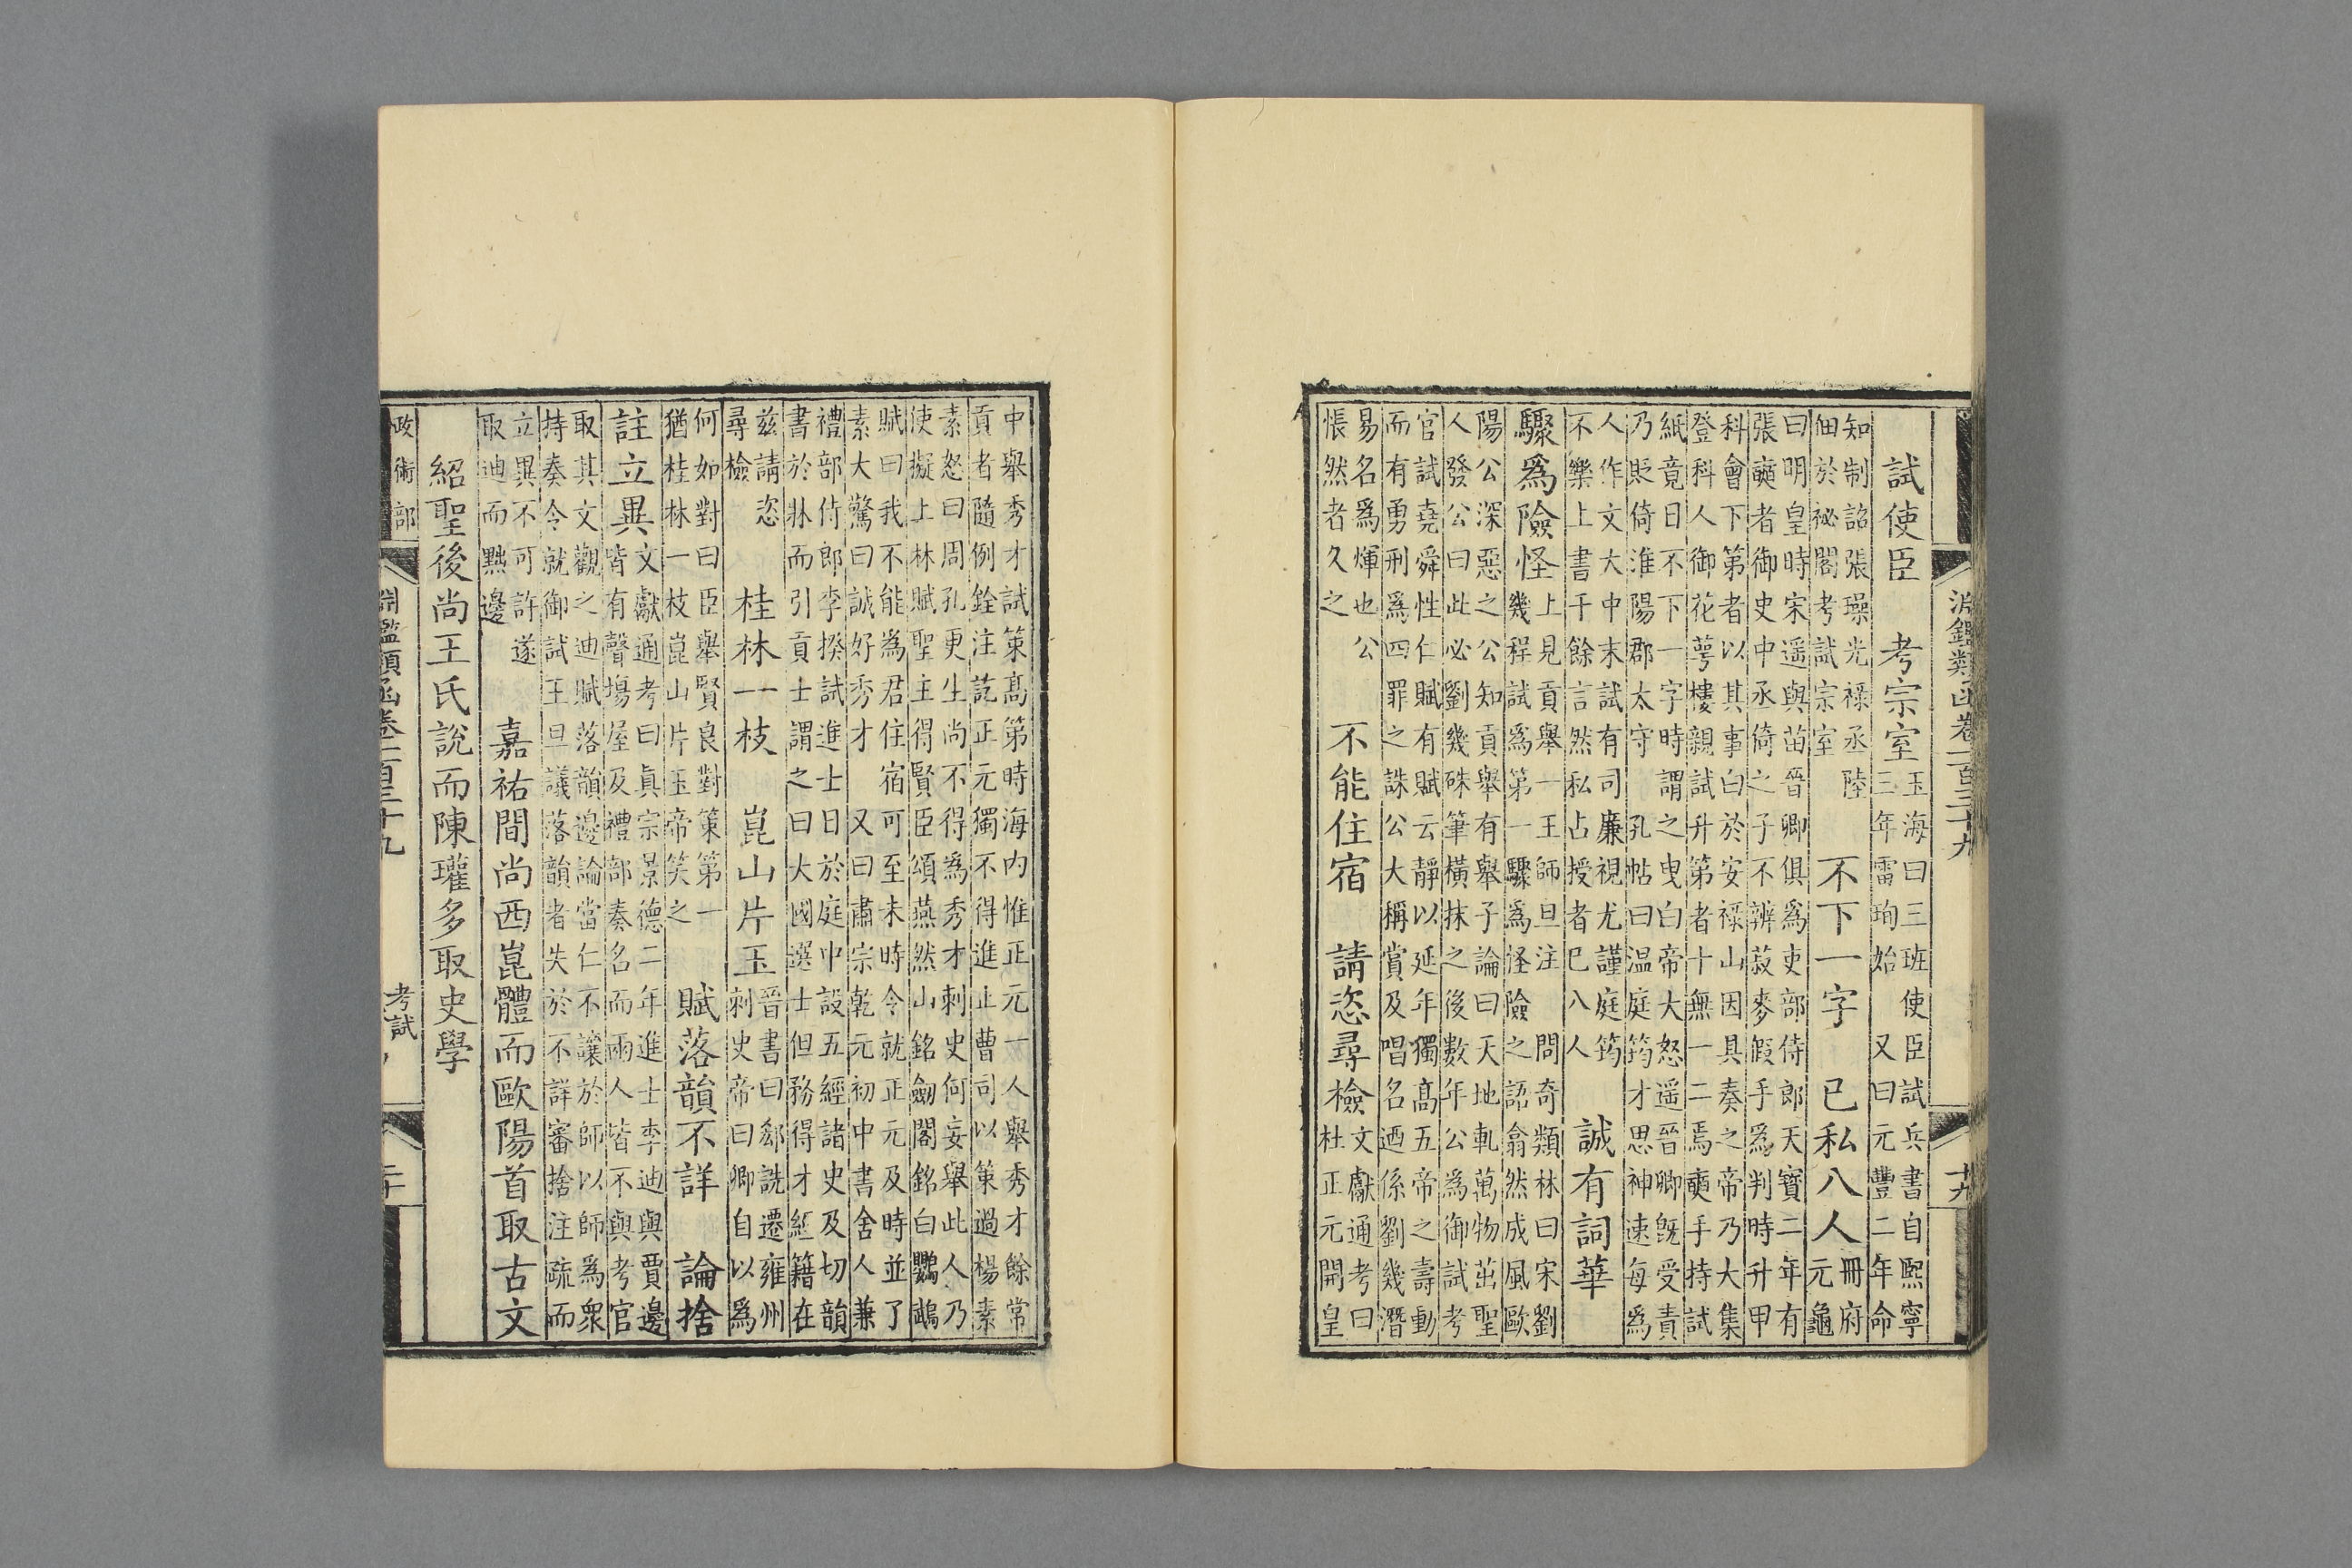 淵鑑類函卷一百三十九　十九
試使臣　考宗室
玉海曰三班使臣試兵書自熙寧
三年雷珣始　又曰元豐二年命
知制誥張璪光祿丞陸
佃於祕閣考試宗室
不下一字　已私八人
冊府
元龜
曰明皇時宋遥與苗晉卿俱爲吏部侍郎天寶二年有
張奭者御史中丞倚之子不辨菽麥假手爲判時升甲
科會下第者以其事白於安祿山因具奏之帝乃大集
登科人御花萼樓親試升第者十無一二焉奭手持試
紙竟日不下一字時謂之曳白帝大怒遥晉卿旣受責
乃貶倚淮陽郡太守　孔帖曰温庭筠才思神速每爲
人作文大中末試有司廉視尤謹庭筠
不樂上書千餘言然私占授者已八人
誠有詞華
驟爲險怪
上見貢舉一王師旦注　問奇類林曰宋劉
幾程試爲第一驟爲怪險之語翕然成風歐
陽公深惡之公知貢舉有舉子論曰天地軋萬物茁聖
人發公曰此必劉幾硃筆橫抹之後數年公爲御試考
官試堯舜性仁賦有賦云靜以延年獨髙五帝之壽動
而有勇刑爲四罪之誅公大稱賞及唱名迺係劉幾潛
易名爲煇也公
悵然者久之
不能住宿　請恣尋檢
文獻通考曰
杜正元開皇
中舉秀才試策髙第時海内惟正元一人舉秀才餘常
貢者隨例銓注訖正元獨不得進止曹司以策過楊素
素怒曰周孔更生尚不得爲秀才刺史何妄舉此人乃
使擬上林賦聖主得賢臣頌燕然山銘劒閣銘白鸚鵡
賦曰我不能爲君住宿可至未時令就正元及時並了
素大驚曰誠好秀才　又曰肅宗乾元初中書舍人兼
禮部侍郎李揆試進士日於庭中設五經諸史及切韻
書於牀而引貢士謂之曰大國選士但務得才經籍在
兹請恣
尋檢
桂林一枝　崑山片玉
晉書曰郄詵遷雍州
刺史帝曰卿自以爲
何如對曰臣舉賢良對策第一
猶桂林一枝崑山片玉帝笑之
賦落韻不詳　論捨
註立異
文獻通考曰眞宗景德二年進士李迪與賈邊
皆有聲塲屋及禮部奏名而兩人皆不與考官
取其文觀之迪賦落韻邊論當仁不讓於師以師爲衆
持奏令就御試王旦議落韻者失於不詳審捨注疏而
立異不可許遂
取迪而黜邊
嘉祐間尚西崑體而歐陽首取古文
紹聖後尚王氏說而陳瓘多取史學
政術部　淵鑑類函卷一百三十九　考試　二十